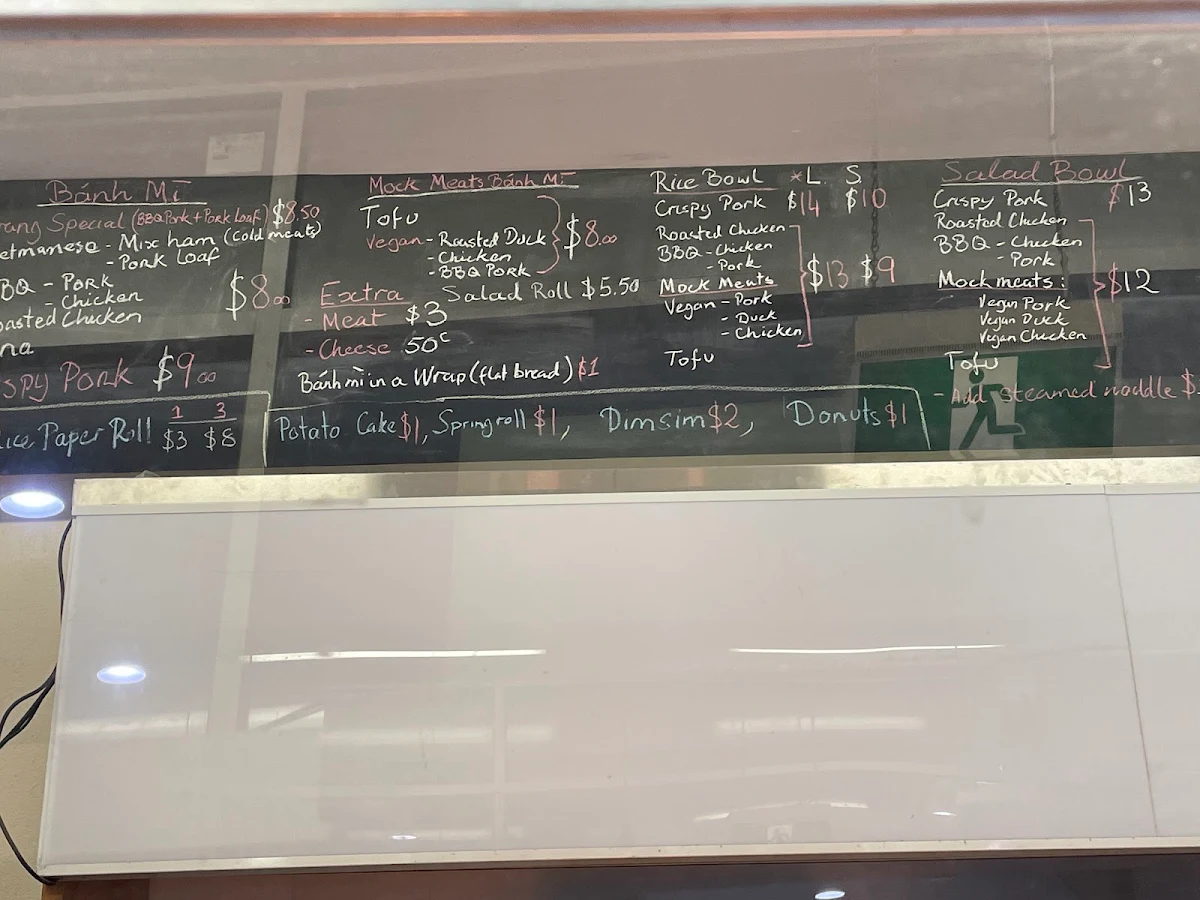 Bánh Mì
Special (BBQ Pork + Pork Loaf) $8.50
- Mix ham (cold meats)
- Pork Loaf
- Pork
- Chicken
Chicken
$8.00
Pork $9.00
Paper Roll 1 3
$3 $8
Mock Meats Bánh Mì
Tofu
Vegan - Roasted Duck
- Chicken
- BBQ Pork
$8.00
Salad Roll $5.50
Extra
- Meat $3
- Cheese 50c
Bánh mì in a Wrap (flat bread) $1
Potato Cake $1, Springroll $1, Dimsim $2, Donuts $1
Rice Bowl *L S
Crispy Pork $14 $10
Roasted Chicken
BBQ - Chicken
- Pork
$13 $9
Mock Meats
Vegan - Pork
- Duck
- Chicken
Tofu
Salad Bowl
Crispy Pork $13
Roasted Chicken
BBQ - Chicken
- Pork
Mock meats:
$12
Vegan Pork
Vegan Duck
Vegan Chicken
Tofu
- Add steamed noddle $